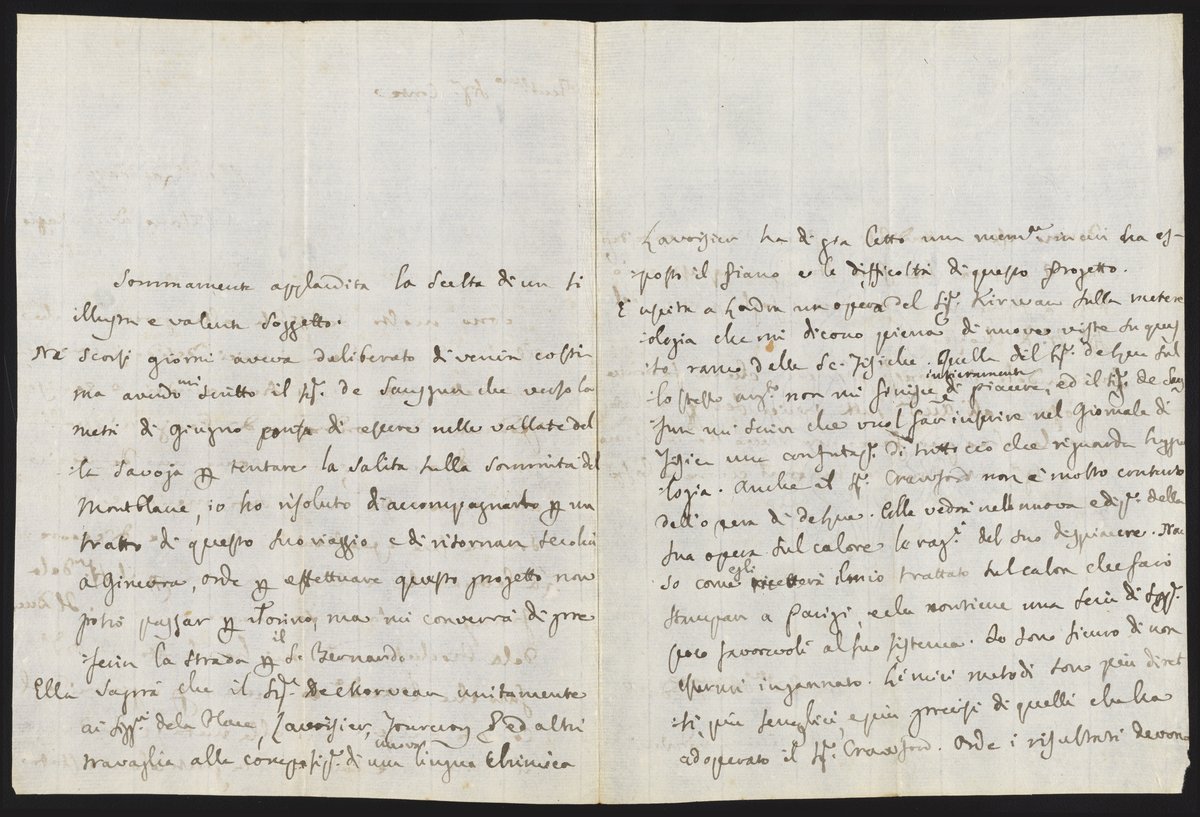 Sommamente applaudita la scelta di un sì
illustre e valente soggetto.
Ne' scorsi giorni aveva deliberato di venire costì
ma avendomi scritto il Sigr. de Saussure che verso la
metà di Giugno pensa di essere nelle vallate del
:la Savoja per tentare la salita sulla sommità del
Montblanc, io ho risoluto di accompagnarlo per un
tratto di questo suo viaggio e di ritornare secolui
a Ginevra, onde per effettuare questo progetto non
potrò passar per Torino, ma mi converrà di pre
:ferire la strada per il S. Bernardo.
Ella saprà che il Sigr. De Morveau unitamente
ai Siggri. de la Place, Lavoisier, Fourcroy ed altri
travaglia alla composize. di una nuova lingua Chimica
Lavoisier ha di già letto una memria. in cui ha es-
:posto il piano e le difficoltà di questo progetto.
È uscita a Londra un opera del Sigr. Kirwan sulla metere
:ologia che mi dicono piena di nuove viste su ques
:to ramo delle Sc. Fisiche. Quella del Sigr. de Luc sul
lo stesso argo. non mi finisce intieramente di piacere, ed il Sigr. de Saus
:sure mi scrive che vuol far inserire nel Giornale di
Fisica una confutaze. di tutto ciò che riguarda l'igro
:logia. Anche il Sigr. Crawford non è molto contento
dell'opera di de Luc. Ella vedrà nella nuova edize. della
sua opera sul calore le ragi. del suo dispiacere. Non
so come egli riceverà il mio trattato sul calore che farò
stampare a Parigi, e che contiene una serie di Spze.
poco favorevoli al suo sistema. Io sono sicuro di non
essermi ingannato. Li miei metodi sono più diret
:ti, più semplici, e più precisi di quelli che ha
adoperato il Sigr. Crawford. Onde i risultati devono